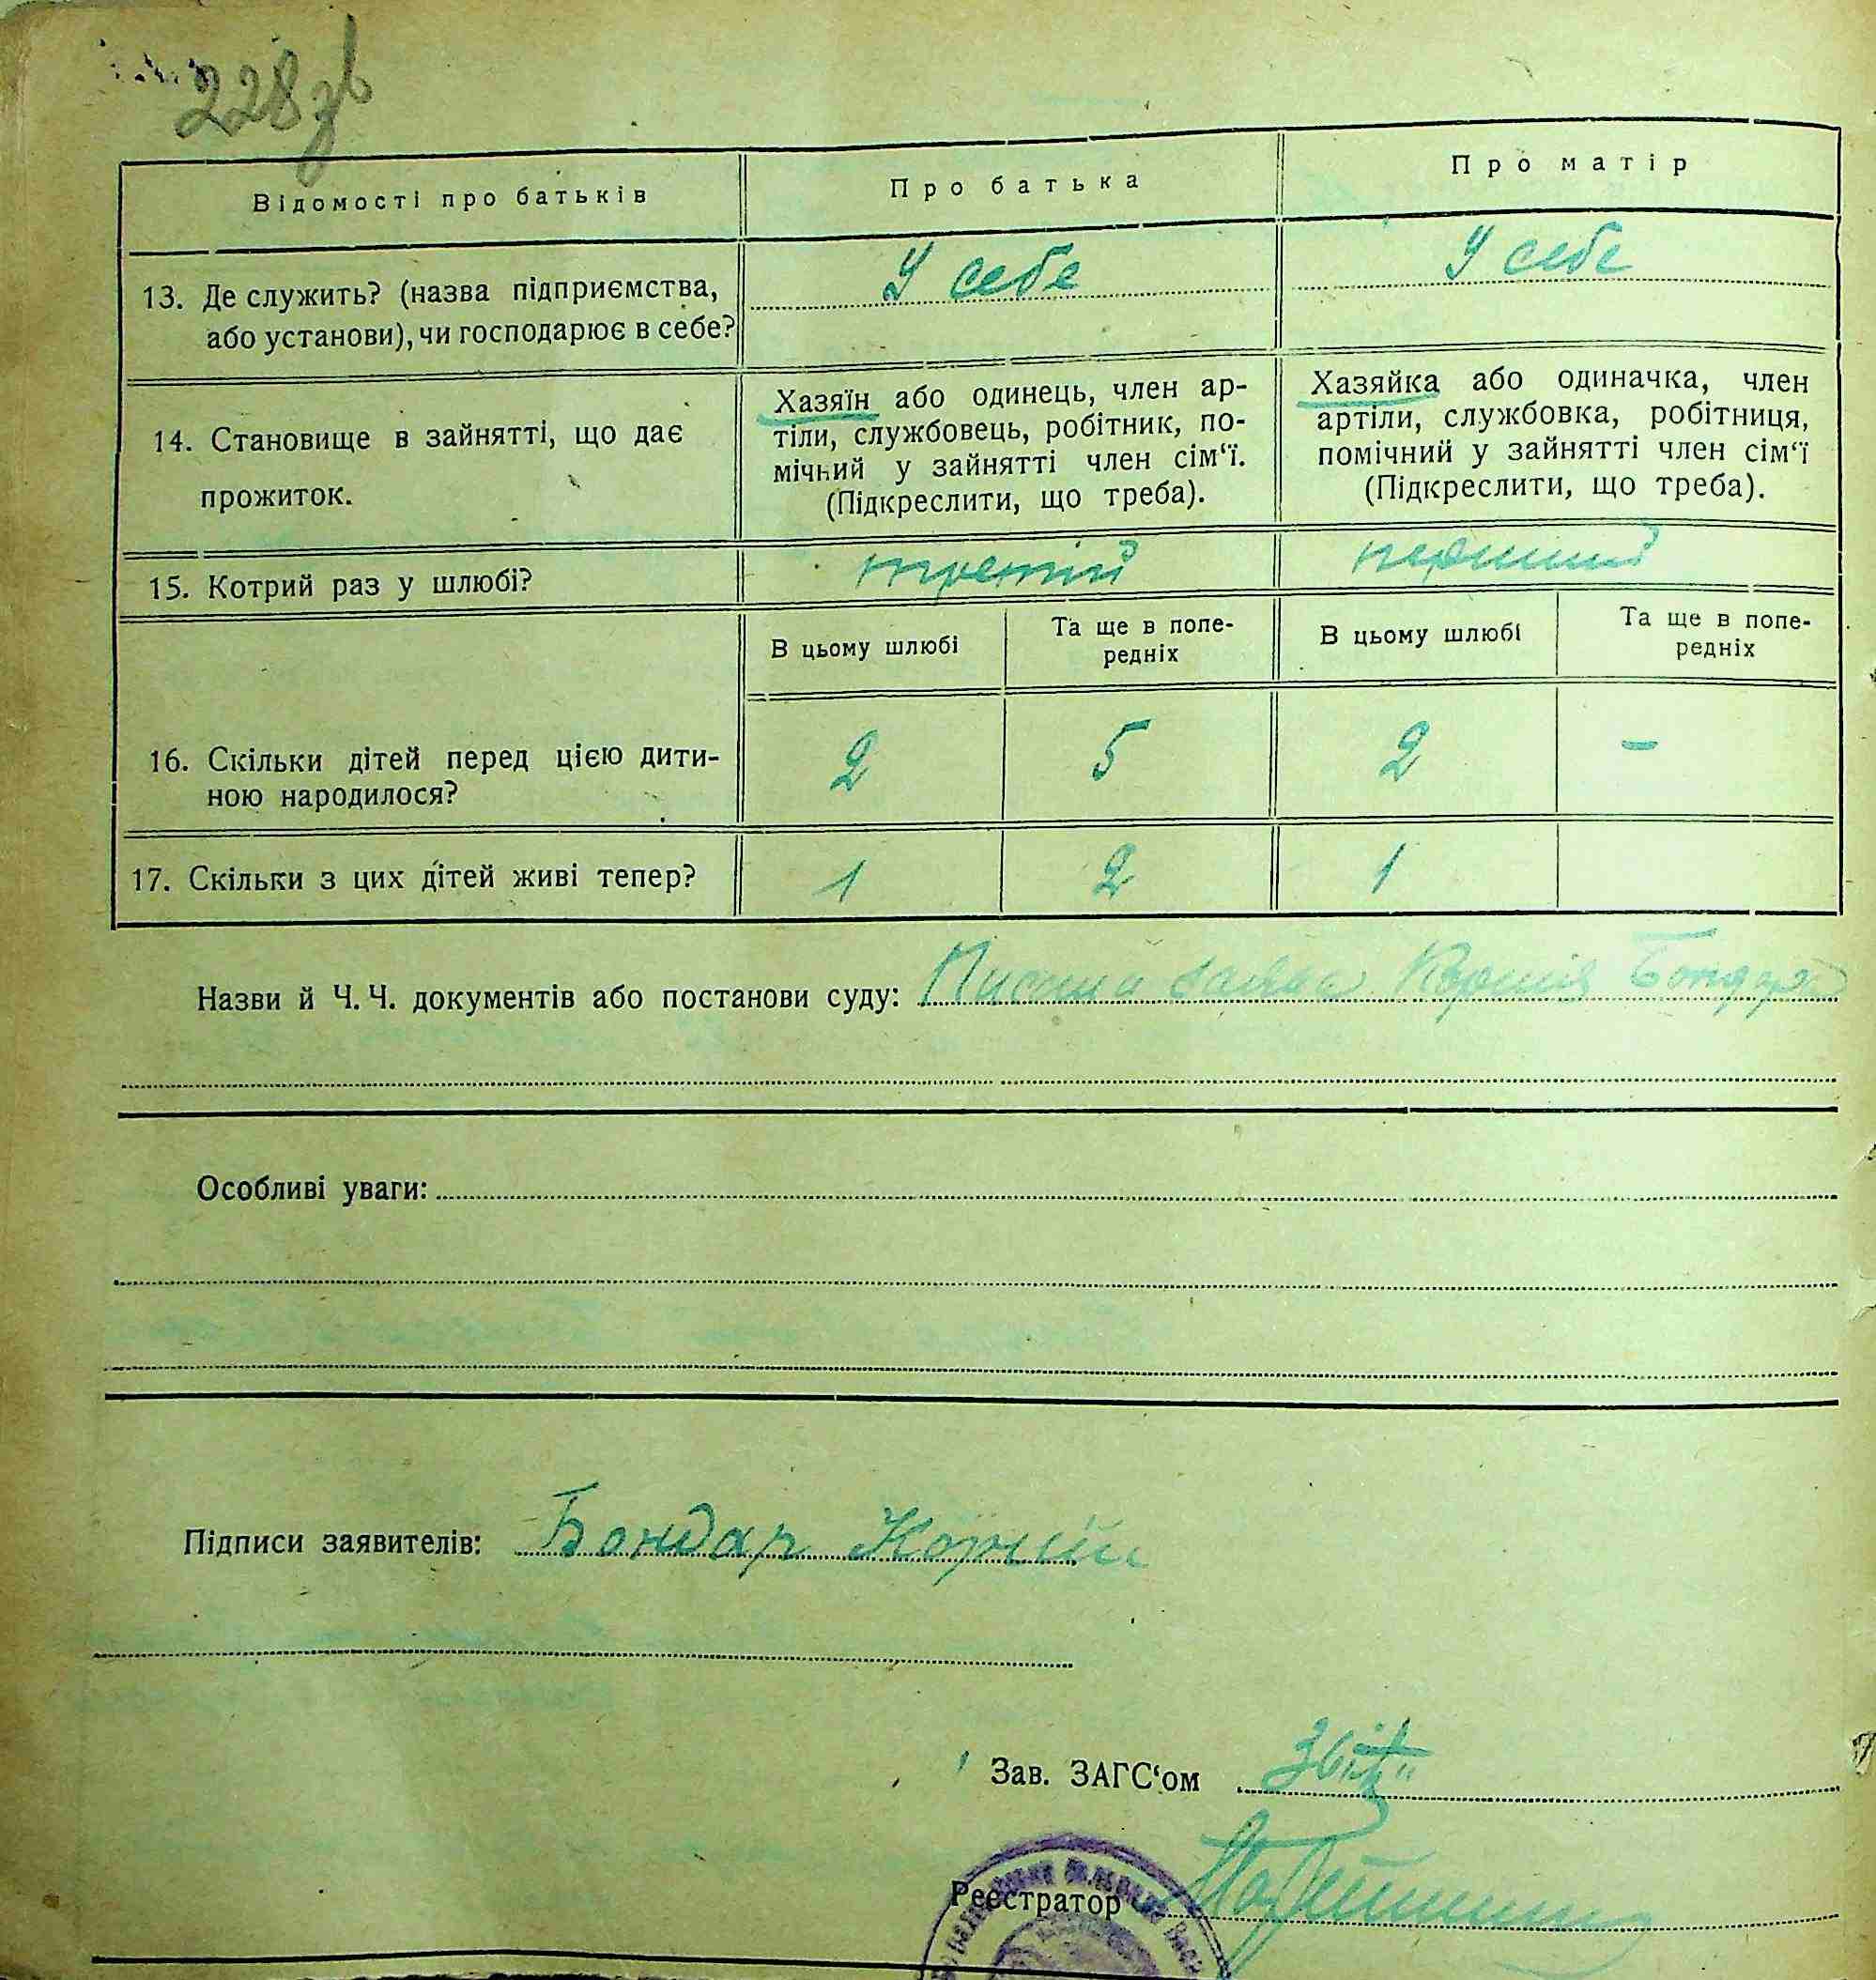 228зв
Відомості про батьків
Про батька
Про матір
13. Де служить? (назва підприємства,
або установи), чи господарює в себе?
У себе
У себе
14. Становище в зайнятті, що дає
прожиток.
Хазяїн або одинець, член ар-
тіли, службовець, робітник, по-
мічний у зайнятті член сім‘ї.
(Підкреслити, що треба).
Хазяйка або одиначка, член
артіли, службовка, робітниця,
помічний у зайнятті член сім‘ї
(Підкреслити, що треба).
15. Котрий раз у шлюбі?
третій
перший
В цьому шлюбі
Та ще в попе-
редніх
В цьому шлюбі
Та ще в попе-
редніх
16. Скільки дітей перед цією дити-
ною народилося?
2
5
2
-
17. Скільки з цих дітей живі тепер?
1
2
1
Назви й Ч. Ч. документів або постанови суду: Корнія Бондаря
Особливі уваги:
Підписи заявителів: Бондар Корній
Зав. ЗАГС‘ом
Реєстратор